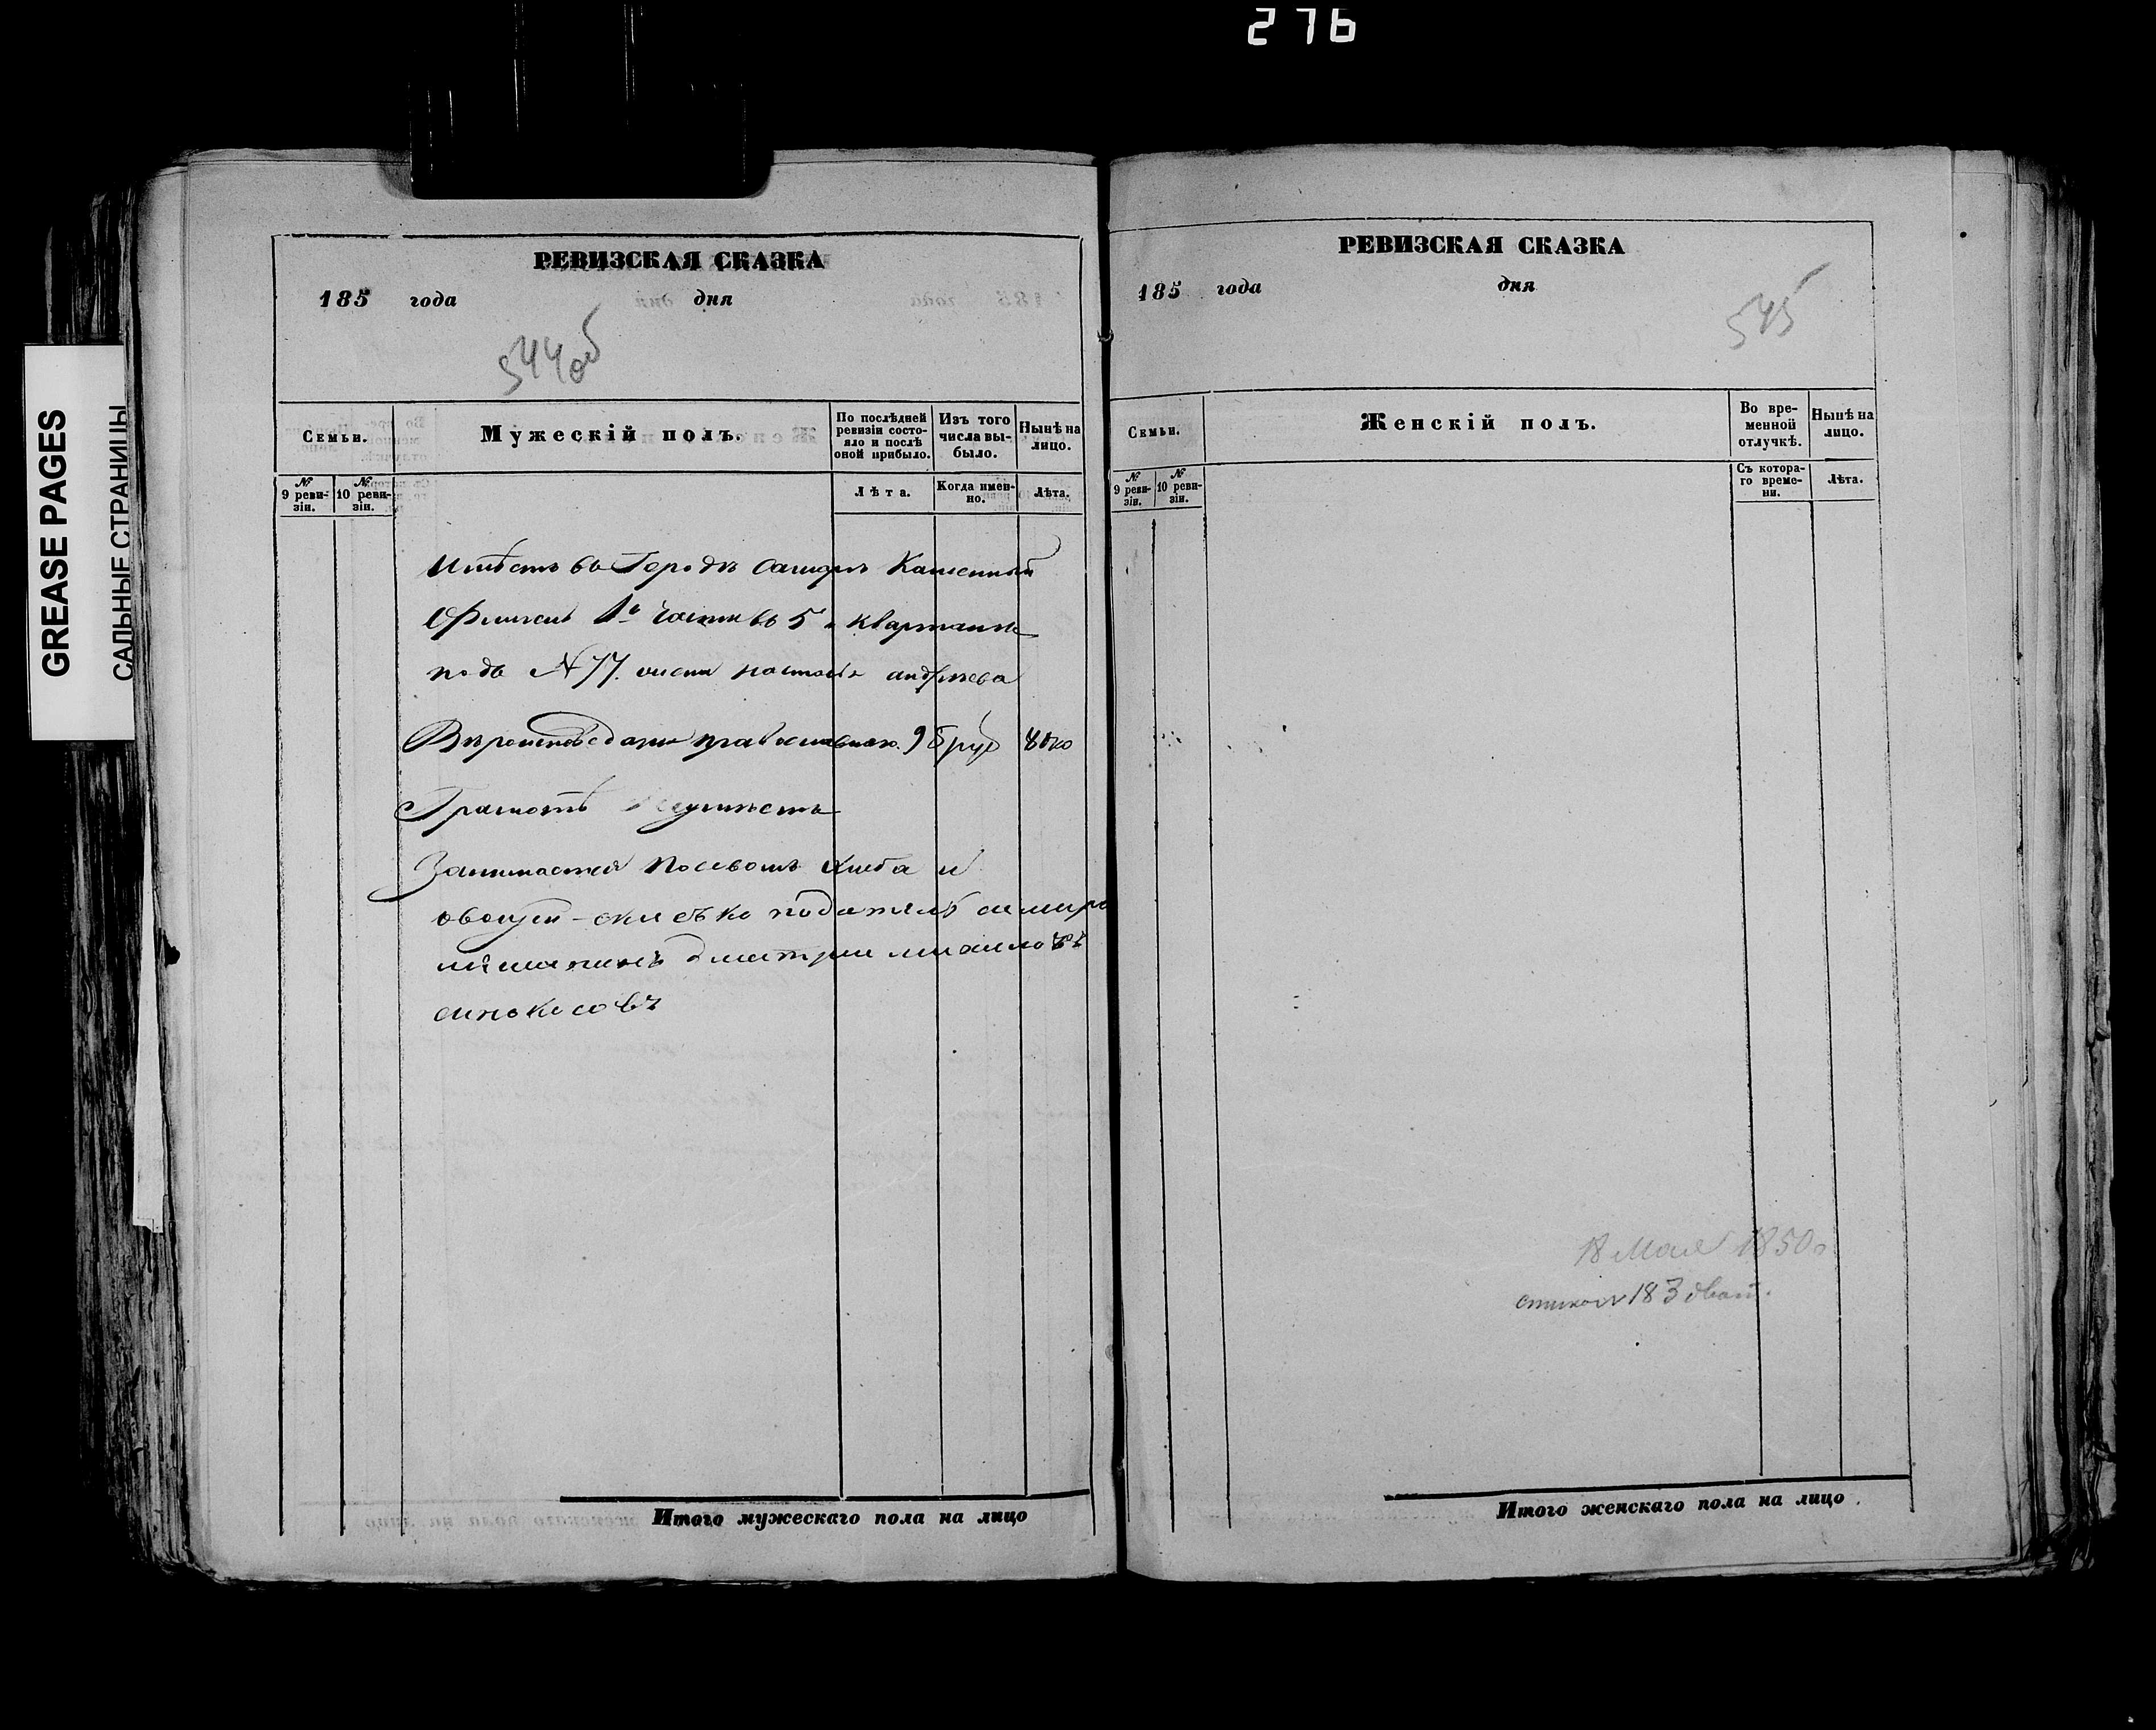 276
GREASE PAGES
САЛЬНЫЕ СТРАНИЦЫ
РЕВИЗСКАЯ СКАЗКА
185 года дня
544об
Семьи.
Мужескій полъ.
По послѣдней ревизіи состояло и послѣ оной прибыло.
Изъ того числа выбыло.
Нынѣ на лицо.
№ 9 ревизіи.
№ 10 ревизіи.
Лѣта.
Когда именно.
Лѣта.
Имѣетъ въ Городѣ Каменный
Флигель 1й части въ 5 м кварталѣ
подъ № 77.
Вѣроисповеданія православнаго. 95 руб 80 ко
Грамотѣ Неумѣетъ
Занимается посевомъ хлеба и
овощей
мещанинъ дмитрии михаиловъ
синокосовъ
Итого мужескаго пола на лицо
РЕВИЗСКАЯ СКАЗКА
185 года дня
545
Семьи.
Женскій полъ.
Во временной отлучкѣ.
Нынѣ на лицо.
№ 9 ревизіи.
№ 10 ревизіи.
Съ котораго времени.
Лѣта.
18 Мая 1850 г
183
Итого женскаго пола на лицо